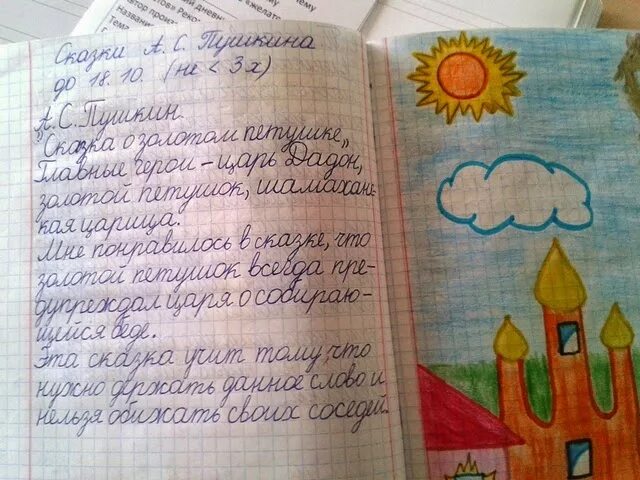 ий дневни
ежелате
втор произ
Рекo
Назван
Тема
Сказки А. С. Пушкина
до 18.10. (не < 3х)
А.С.Пушкин.
"Сказка о золотом петушке„
Главные герои - царь Дадон,
золотой петушок, шамахан-
ская царица.
Мне понравилось в сказке, что
золотой петушок всегда пре-
дупреждал царя о собираю-
щейся беде.
Эта сказка учит тому, что
нужно держать данное слово и
нельзя обижать своих соседей.